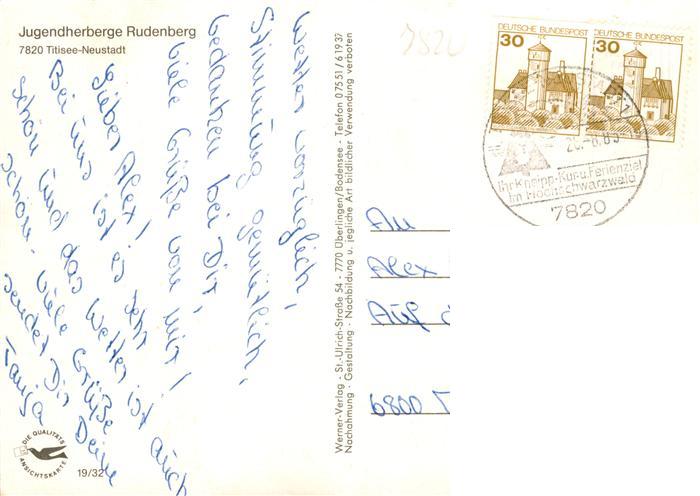 Jugendherberge Rudenberg
7820 Titisee-Neustadt
Wetter vorzüglich,
Stimmung gemütlich,
Gedanken bei Dir,
viele Grüße von mir!
Lieber Alex!
Bei uns ist es sehr
schön und das Wetter ist auch
schön. Viele Grüße
sendet Dir Deine
Tanja
DIE QUALITÄTS
ANSICHTSKARTE
19/32
Werner-Verlag - St.-Ulrich-Straße 54 - 7770 Überlingen/Bodensee - Telefon 0 75 51 / 6 19 37
Nachahmung - Gestaltung - Nachbildung u. jegliche Art bildlicher Verwendung verboten
7820
DEUTSCHE BUNDESPOST
30
DEUTSCHE BUNDESPOST
30
Ihr Kneipp-Kur-u. Ferienziel
im Hochschwarzwald
7820
An
Alex
Auf
6800